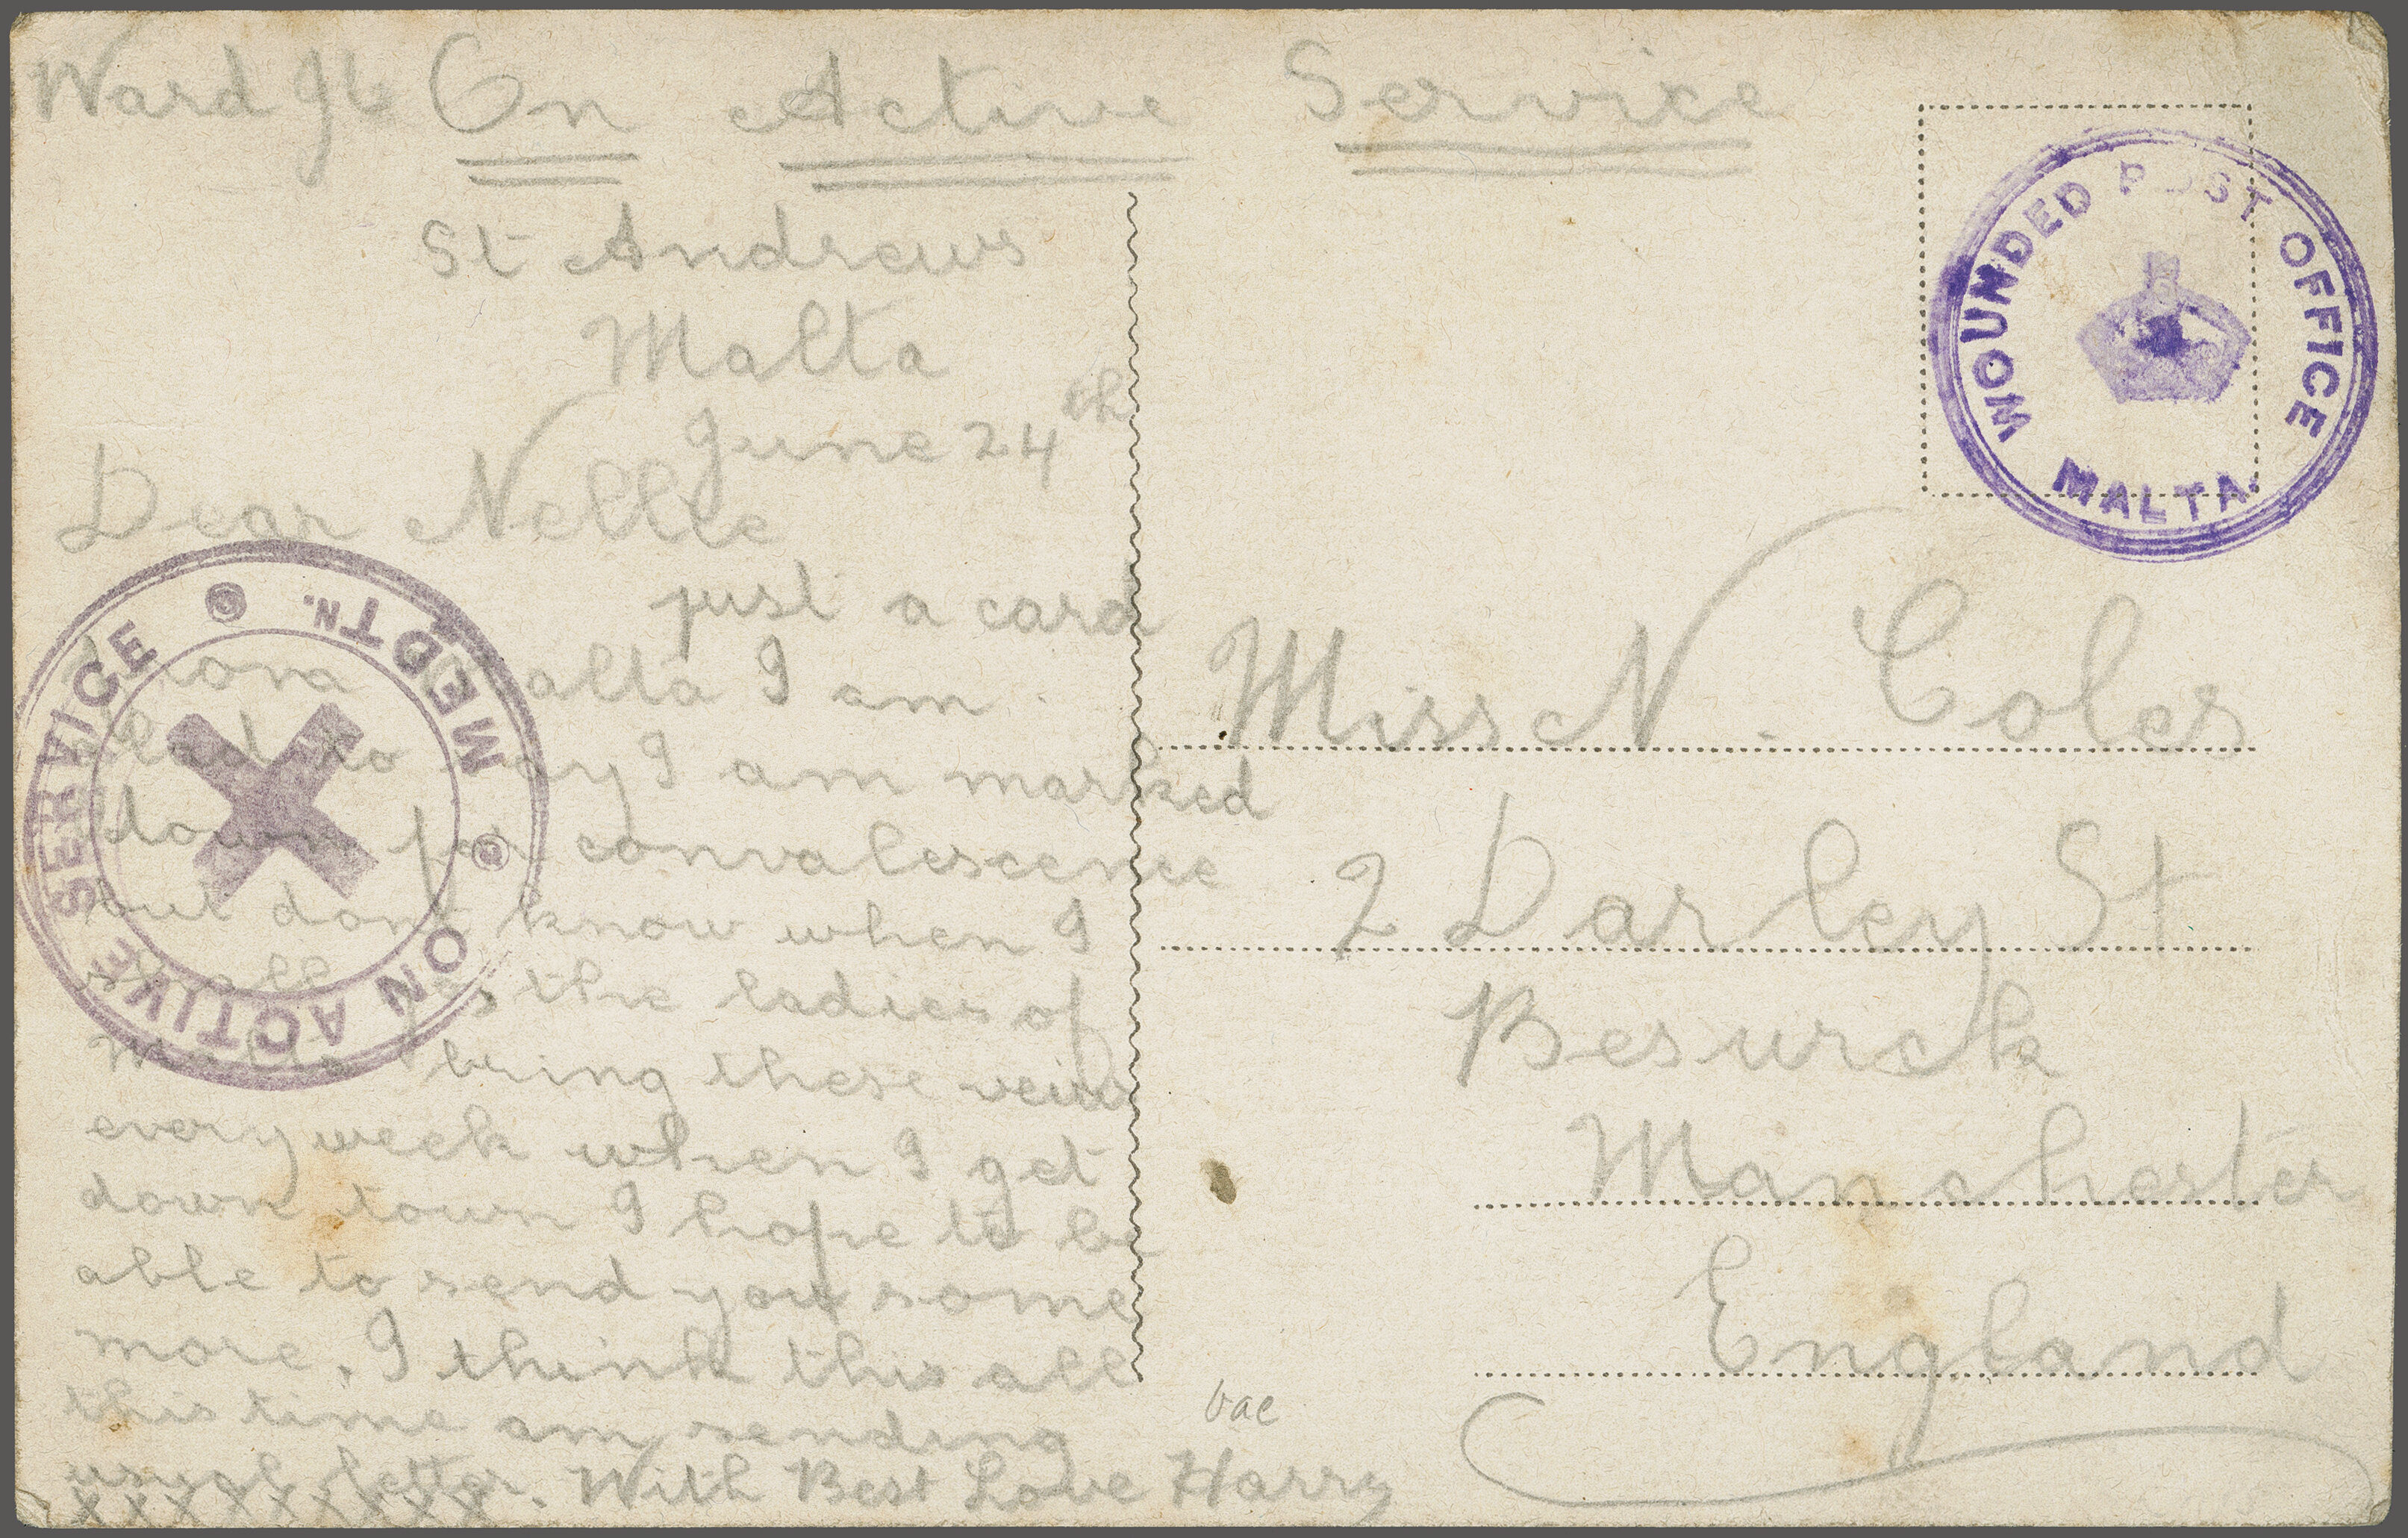 Ward J6 On Active Service
St Andrews
Malta
June 24th
Dear Nellie
just a card
from Malta I am
glad to say I am marked
down for convalescence
but dont know when I
shall go the ladies of
Malta bring these veiws
every week when I get
down town I hope to be
able to send you some
more. I think this all
this time am sending
usual letter. With Best Love Harry
xxxxxxxxxx
ON ACTIVE SERVICE
MEDTN.
WOUNDED POST OFFICE
MALTA
Miss N. Coles
2 Darley St
Beswick
Manchester
England